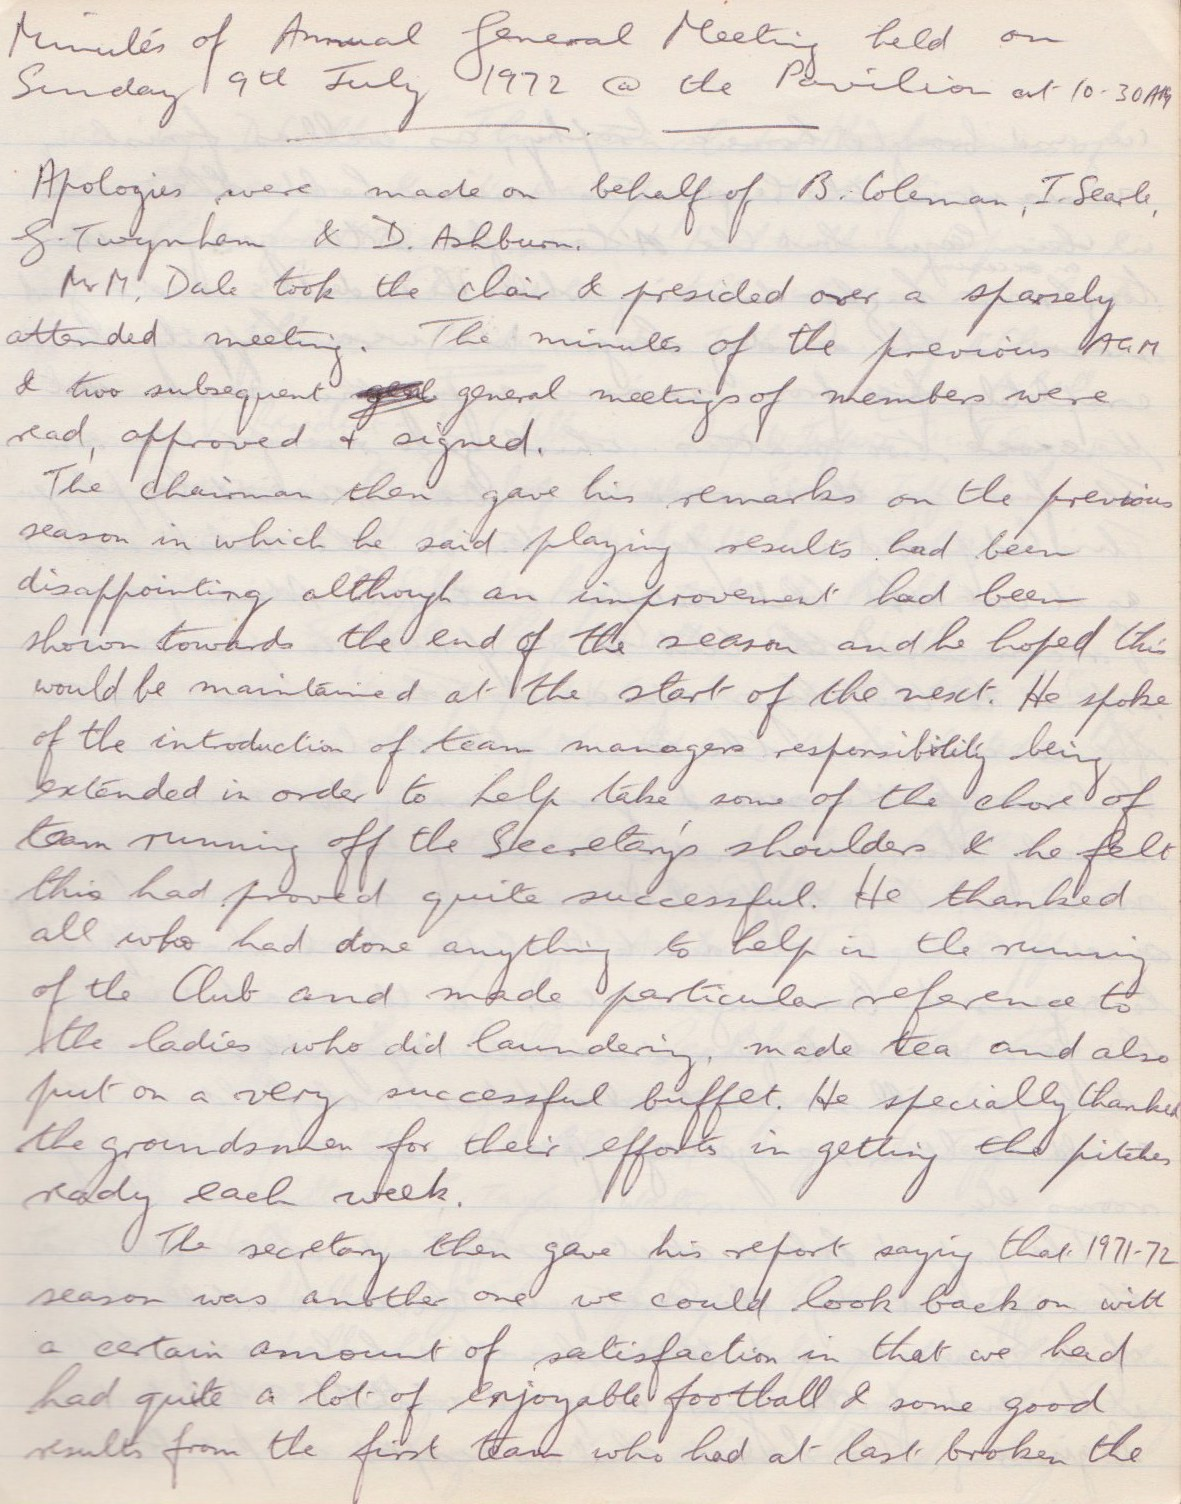 Minutes of Annual General Meeting held on
Sunday 9th July 1972 @ the Pavilion at 10-30AM
Apologies were made on behalf of B. Coleman, I. Searle,
G. Twynham & D. Ashburn.
Mr M. Dale took the chair & presided over a sparsely
attended meeting. The minutes of the previous AGM
& two subsequent general meetings of members were
read, approved & signed.
The chairman then gave his remarks on the previous
season in which he said playing results had been
disappointing although an improvement had been
shown towards the end of the season and he hoped this
would be maintained at the start of the next. He spoke
of the introduction of team managers responsibility being
extended in order to help take some of the chore of
team running off the Secretary's shoulders & he felt
this had proved quite successful. He thanked
all who had done anything to help in the running
of the Club and made particular reference to
the ladies who did laundering, made tea and also
put on a very successful buffet. He specially thanked
the groundsmen for their efforts in getting the pitches
ready each week.
The secretary then gave his report saying that 1971-72
season was another one we could look back on with
a certain amount of satisfaction in that we had
had quite a lot of enjoyable football & some good
results from the first team who had at last broken the